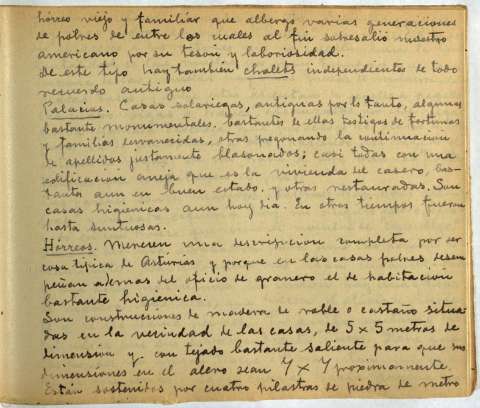 hórreo viejo y familiar que albergó varias generaciones
de pobres de entre los cuales al fin sobresalió nuestro
americano por su tesón y laboriosidad.
De este tipo hay también chalets independientes de todo
recuerdo antiguo
Palacios. Casas solariegas, antiguas por lo tanto, algunas
bastante monumentales. bastantes de ellas testigos de fortunas
y familias desvanecidas, otras pregonando la continuacion
de apellidos justamente blasonados; casi todas con una
edificación aneja que es la vivienda del casero, bas-
tantes aun en buen estado y otras restauradas. Son
casas higienicas aun hoy dia. En otros tiempos fueron
hasta suntuosas.
Hórreos. Merecen una descripcion completa por ser
cosa tipica de Asturias y porque en las casas pobres desem
peñan ademas del oficio de granero el de habitacion
bastante higienica.
Son construcciones de madera de roble o castaño situa-
das en la vecindad de las casas, de 5 x 5 metros de
dimension y con tejado bastante saliente para que sus
dimensiones en el alero sean 7 x 7 proximamente
Están sostenidos por cuatro pilastras de piedra de metro